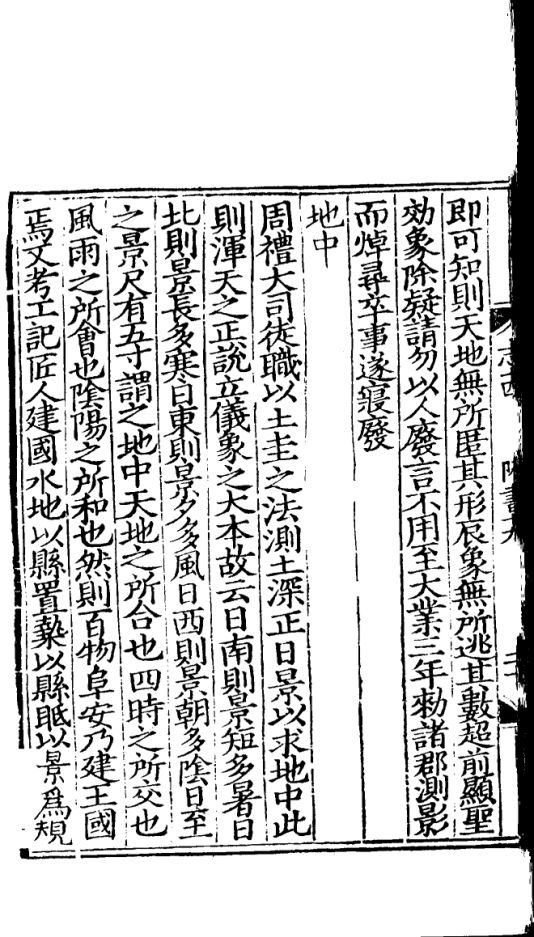 即可知則天地無所匿其形辰象無所逃其數超前顯聖
効象除疑請勿以人廢言不用至大業三年勑諸郡測影
而焯尋卒事遂寢廢
地中
周禮大司徒職以土圭之法測土深正日景以求地中此
則渾天之正說立儀象之大本故云日南則景短多暑日
北則景長多寒日東則景夕多風日西則景朝多陰日至
之景尺有五寸謂之地中天地之所合也四時之所交也
風雨之所會也陰陽之所和也然則百物阜安乃建王國
焉又考工記匠人建國水地以縣置槷以縣眡以景爲規